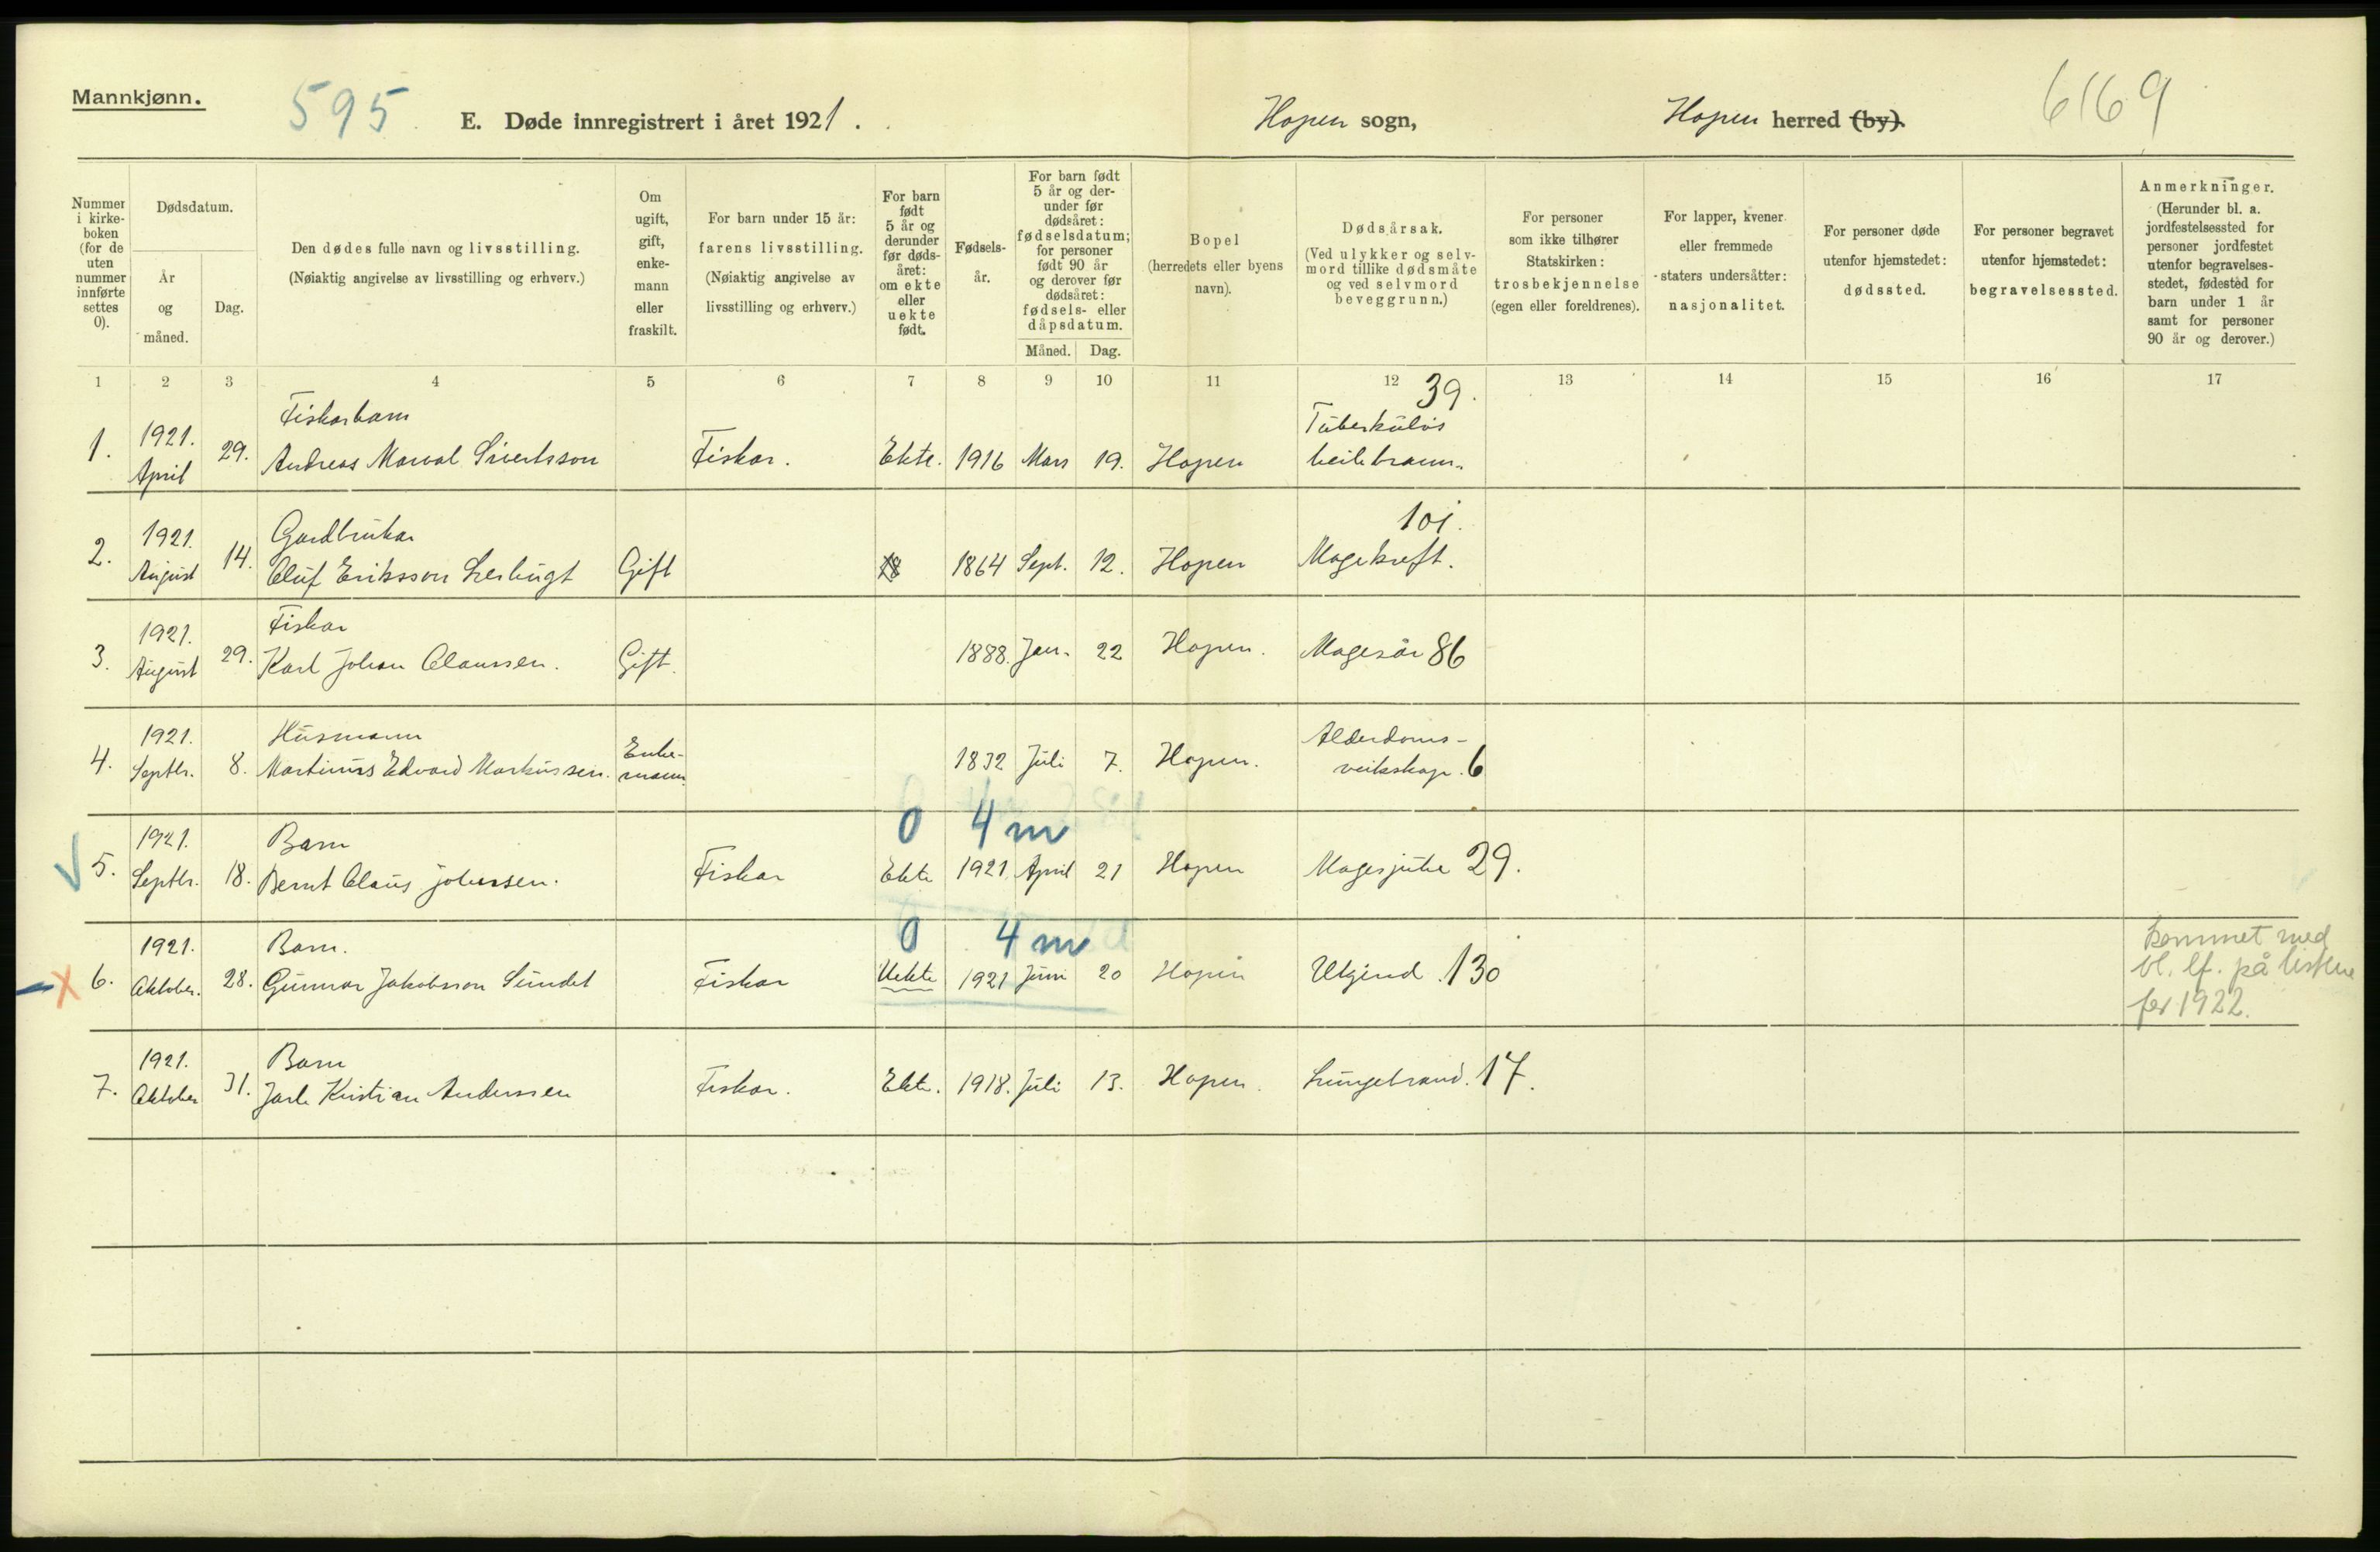 Mannkjønn.
595
E. Døde innregistrert i året 1921.
Hopen sogn,
Hopen herred (by).
6169
Nummer i kirke-boken (for de uten nummer innførte settes 0).
Dødsdatum.
År og måned.
Dag.
Den dødes fulle navn og livsstilling.
(Nøiaktig angivelse av livsstilling og erhverv.)
Om ugift, gift, enke-mann eller fraskilt.
For barn under 15 år:
farens livsstilling.
(Nøiaktig angivelse av livsstilling og erhverv.)
For barn født 5 år og derunder før døds-året: om ekte eller uekte født.
Fødsels-år.
For barn født 5 år og der-under før dødsåret: fødselsdatum; for personer født 90 år og derover før dødsåret: fødsels- eller dåpsdatum.
Måned.
Dag.
Bopel
(herredets eller byens navn).
Dødsårsak.
(Ved ulykker og selv-mord tillike dødsmåte og ved selvmord beveggrunn.)
For personer som ikke tilhører Statskirken: trosbekjennelse (egen eller foreldrenes).
For lapper, kvener eller fremmede staters undersåtter: nasjonalitet.
For personer døde utenfor hjemstedet: dødssted.
For personer begravet utenfor hjemstedet: begravelsessted.
Anmerkninger.
(Herunder bl. a. jordfestelsessted for personer jordfestet utenfor begravelses-stedet, fødested for barn under 1 år samt for personer 90 år og derover.)
1 2 3 4 5 6 7 8 9 10 11 12 13 14 15 16 17
39.
Fiskarbarn
Tuberkuløs
1. 1921. April 29. Andreas Marval Sivertsson Fiskar. Ekte. 1916 Mars 19. Hopen
101.
Gardbrukar
2. 1921. August 14. Oluf Eriksson Leirbugt Gift 1864 Sept. 12. Hopen Magekreft.
Fiskar
3. 1921. August 29. Karl Johan Claussen. Gift. 1888. Jan. 22 Hopen. Magesår 86
Husmann
4. 1921. Septbr. 8. Martinus Edvard Markussen. Enke-mann. 1832 Juli 7. Hopen. Alderdoms-veikskap. 6
0 4 m
Barn
5. 1921. Septbr. 18. Bernt Claus Johnssen. Fiskar Ekte 1921 April 21 Hopen Magesjuke 29.
0 4 m
Barn.
6. 1921. Oktober. 28. Gunnar Jakobsson Sundet Fiskar Uekte 1921 Juni 20 Hopen Ukjend. 130
kommet med
bl. lf. på listene
for 1922.
Barn
7. 1921. Oktober 31. Jarle Kristian Anderssen Fiskar. Ekte. 1918. Juli 13. Hopen. Lungebrand. 17.